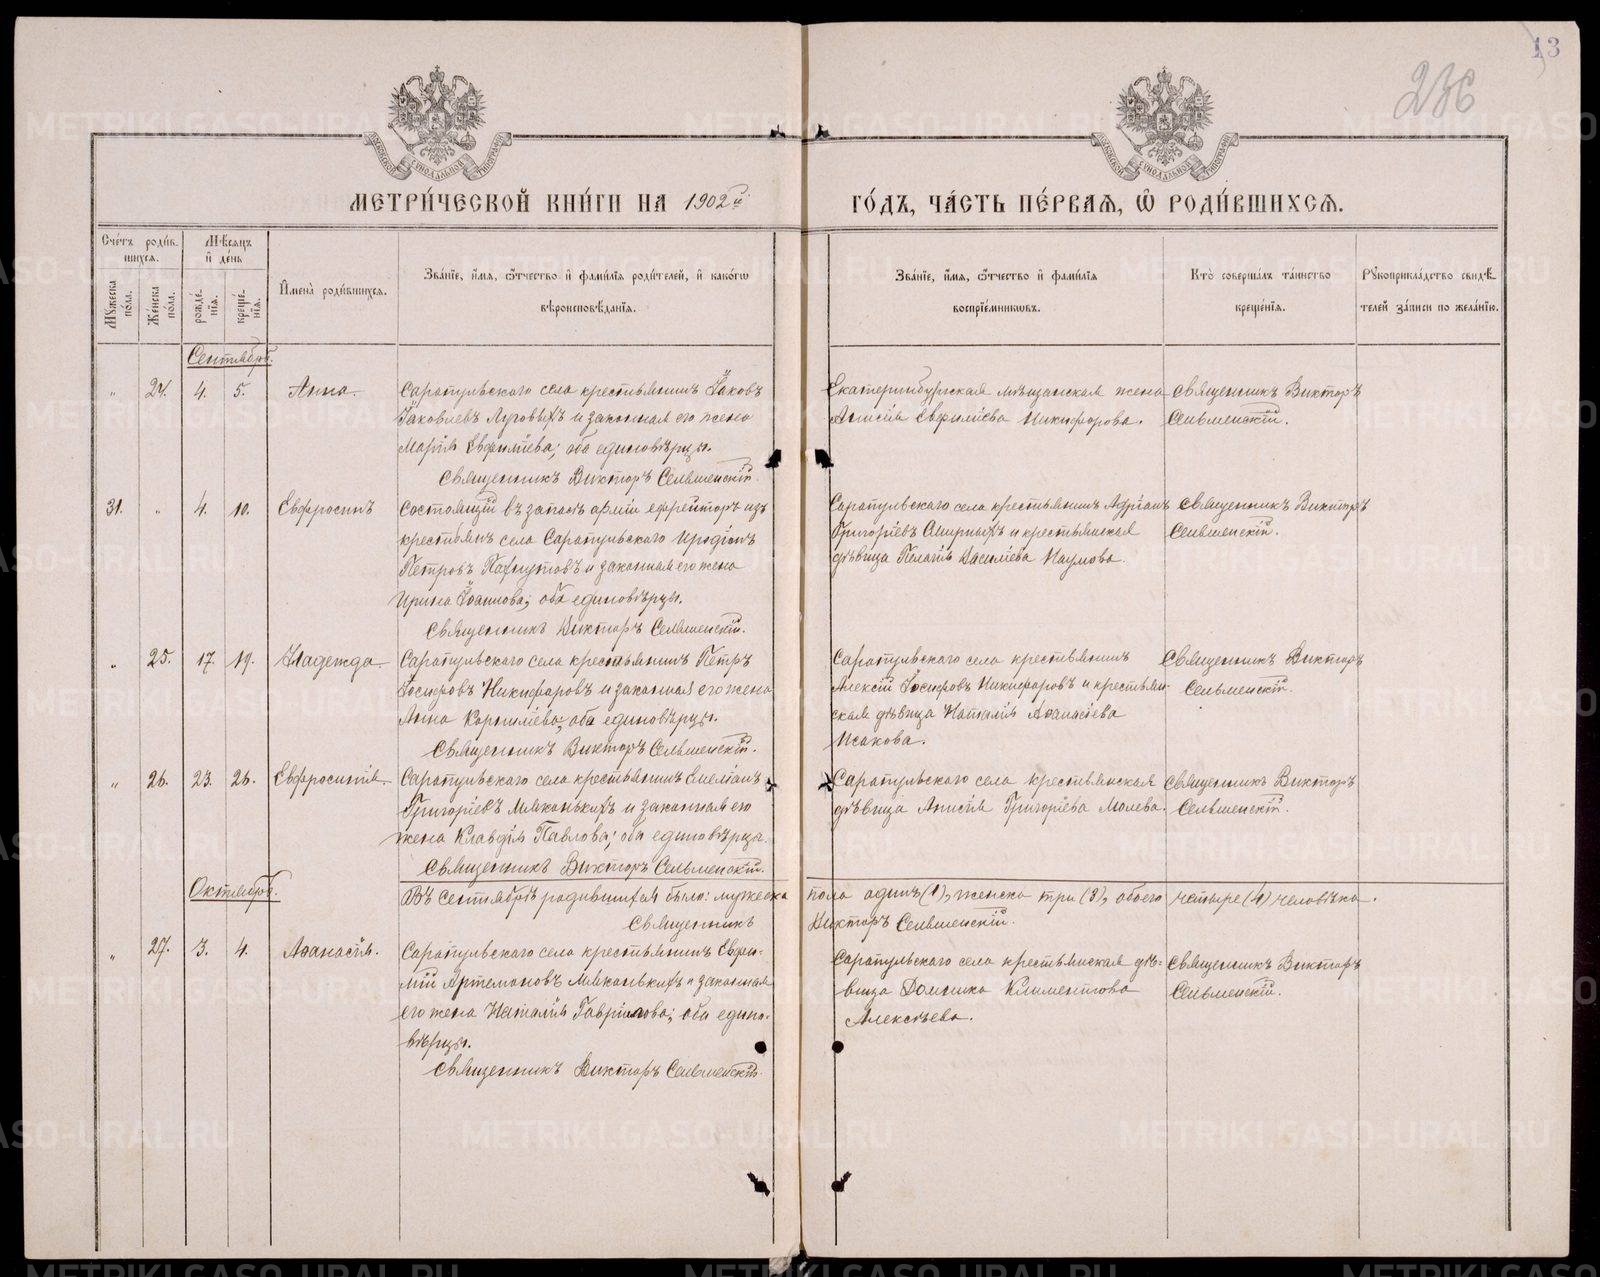 13
236
МЕТРИ́ЧЕСКОЙ КНИ́ГИ НА 1902й ГО́ДЪ, ЧА́СТЬ ПЕ́РВАѦ, Ѽ РОДИ́ВШИХСѦ.
Сче́тъ роди́вшихсѧ.
Мѣ́сѧцъ и҆ де́нь
Мꙋ́жеска по́ла.
Же́нска по́ла.
рожде́нїѧ.
креще́нїѧ.
И҆мена̀ роди́вшихсѧ.
Зва́нїе, и҆́мѧ, ѻ҆́тчество и҆ фами́лїѧ роди́телей, и҆ како́гѡ
вѣроисповѣ́данїѧ.
Зва́нїе, и҆́мѧ, ѻ҆́тчество и҆ фами́лїѧ
воспрїе́мниковъ.
Кто̀ соверша́лъ та́инство
креще́нїѧ.
Рꙋкоприкла́дство свидѣ́-
телей за́писи по жела́нїю.
Сентябрь.
" 24. 4. 5. Анна.
Сарапульскаго села крестьянинъ Іаковъ
Іаковлевъ Луговыхъ и законная его жена
Марія Евфиміева; оба единовѣрцы.
Священникъ Викторъ Сельменскій.
Екатеринбургская мѣщанская жена
Анисія Евфиміева Никифорова.
Священникъ Викторъ
Сельменскій.
31. " 4. 10. Евфросинъ
Состоящій въ запасѣ арміи ефрейторъ изъ
крестьянъ села Сарапульскаго Иродіонъ
Петровъ Пафнутовъ и законная его жена
Ирина Іоаннова; оба единовѣрцы.
Священникъ Викторъ Сельменскій.
Сарапульскаго села крестьянинъ Адріанъ
Григоріевъ Смирныхъ и крестьянская
дѣвица Пелагія Василіева Наумова.
Священникъ Викторъ
Сельменскій.
" 25. 17. 19. Надежда.
Сарапульскаго села крестьянинъ Петръ
Іосифовъ Никифоровъ и законная его жена
Анна Корниліева; оба единовѣрцы.
Священникъ Викторъ Сельменскій.
Сарапульскаго села крестьянинъ
Алексій Іосифовъ Никифоровъ и крестьян-
ская дѣвица Наталія Аѳанасіева
Исакова.
Священникъ Викторъ
Сельменскій.
" 26. 23. 26. Евфросинія.
Сарапульскаго села крестьянинъ Емеліанъ
Григоріевъ Мяконькихъ и законная его
жена Клавдія Павлова; оба единовѣрца.
Священникъ Викторъ Сельменскій.
Сарапульскаго села крестьянская
дѣвица Анисія Григоріева Молева.
Священникъ Викторъ
Сельменскій.
Октябрь.
Въ сентябрѣ родившихся было: мужеска пола одинъ (1), женска три (3), обоего четыре (4) человѣка.
Священникъ Викторъ Сельменскій.
" 27. 3. 4. Аѳанасія.
Сарапульскаго села крестьянинъ Евфи-
мій Артемоновъ Мяконькихъ и законная
его жена Наталія Гавріилова; оба едино-
вѣрцы.
Священникъ Викторъ Сельменскій.
Сарапульскаго села крестьянская дѣ-
вица Домника Климентова
Алексѣева.
Священникъ Викторъ
Сельменскій.
METRIKI.GASO-URAL.RU